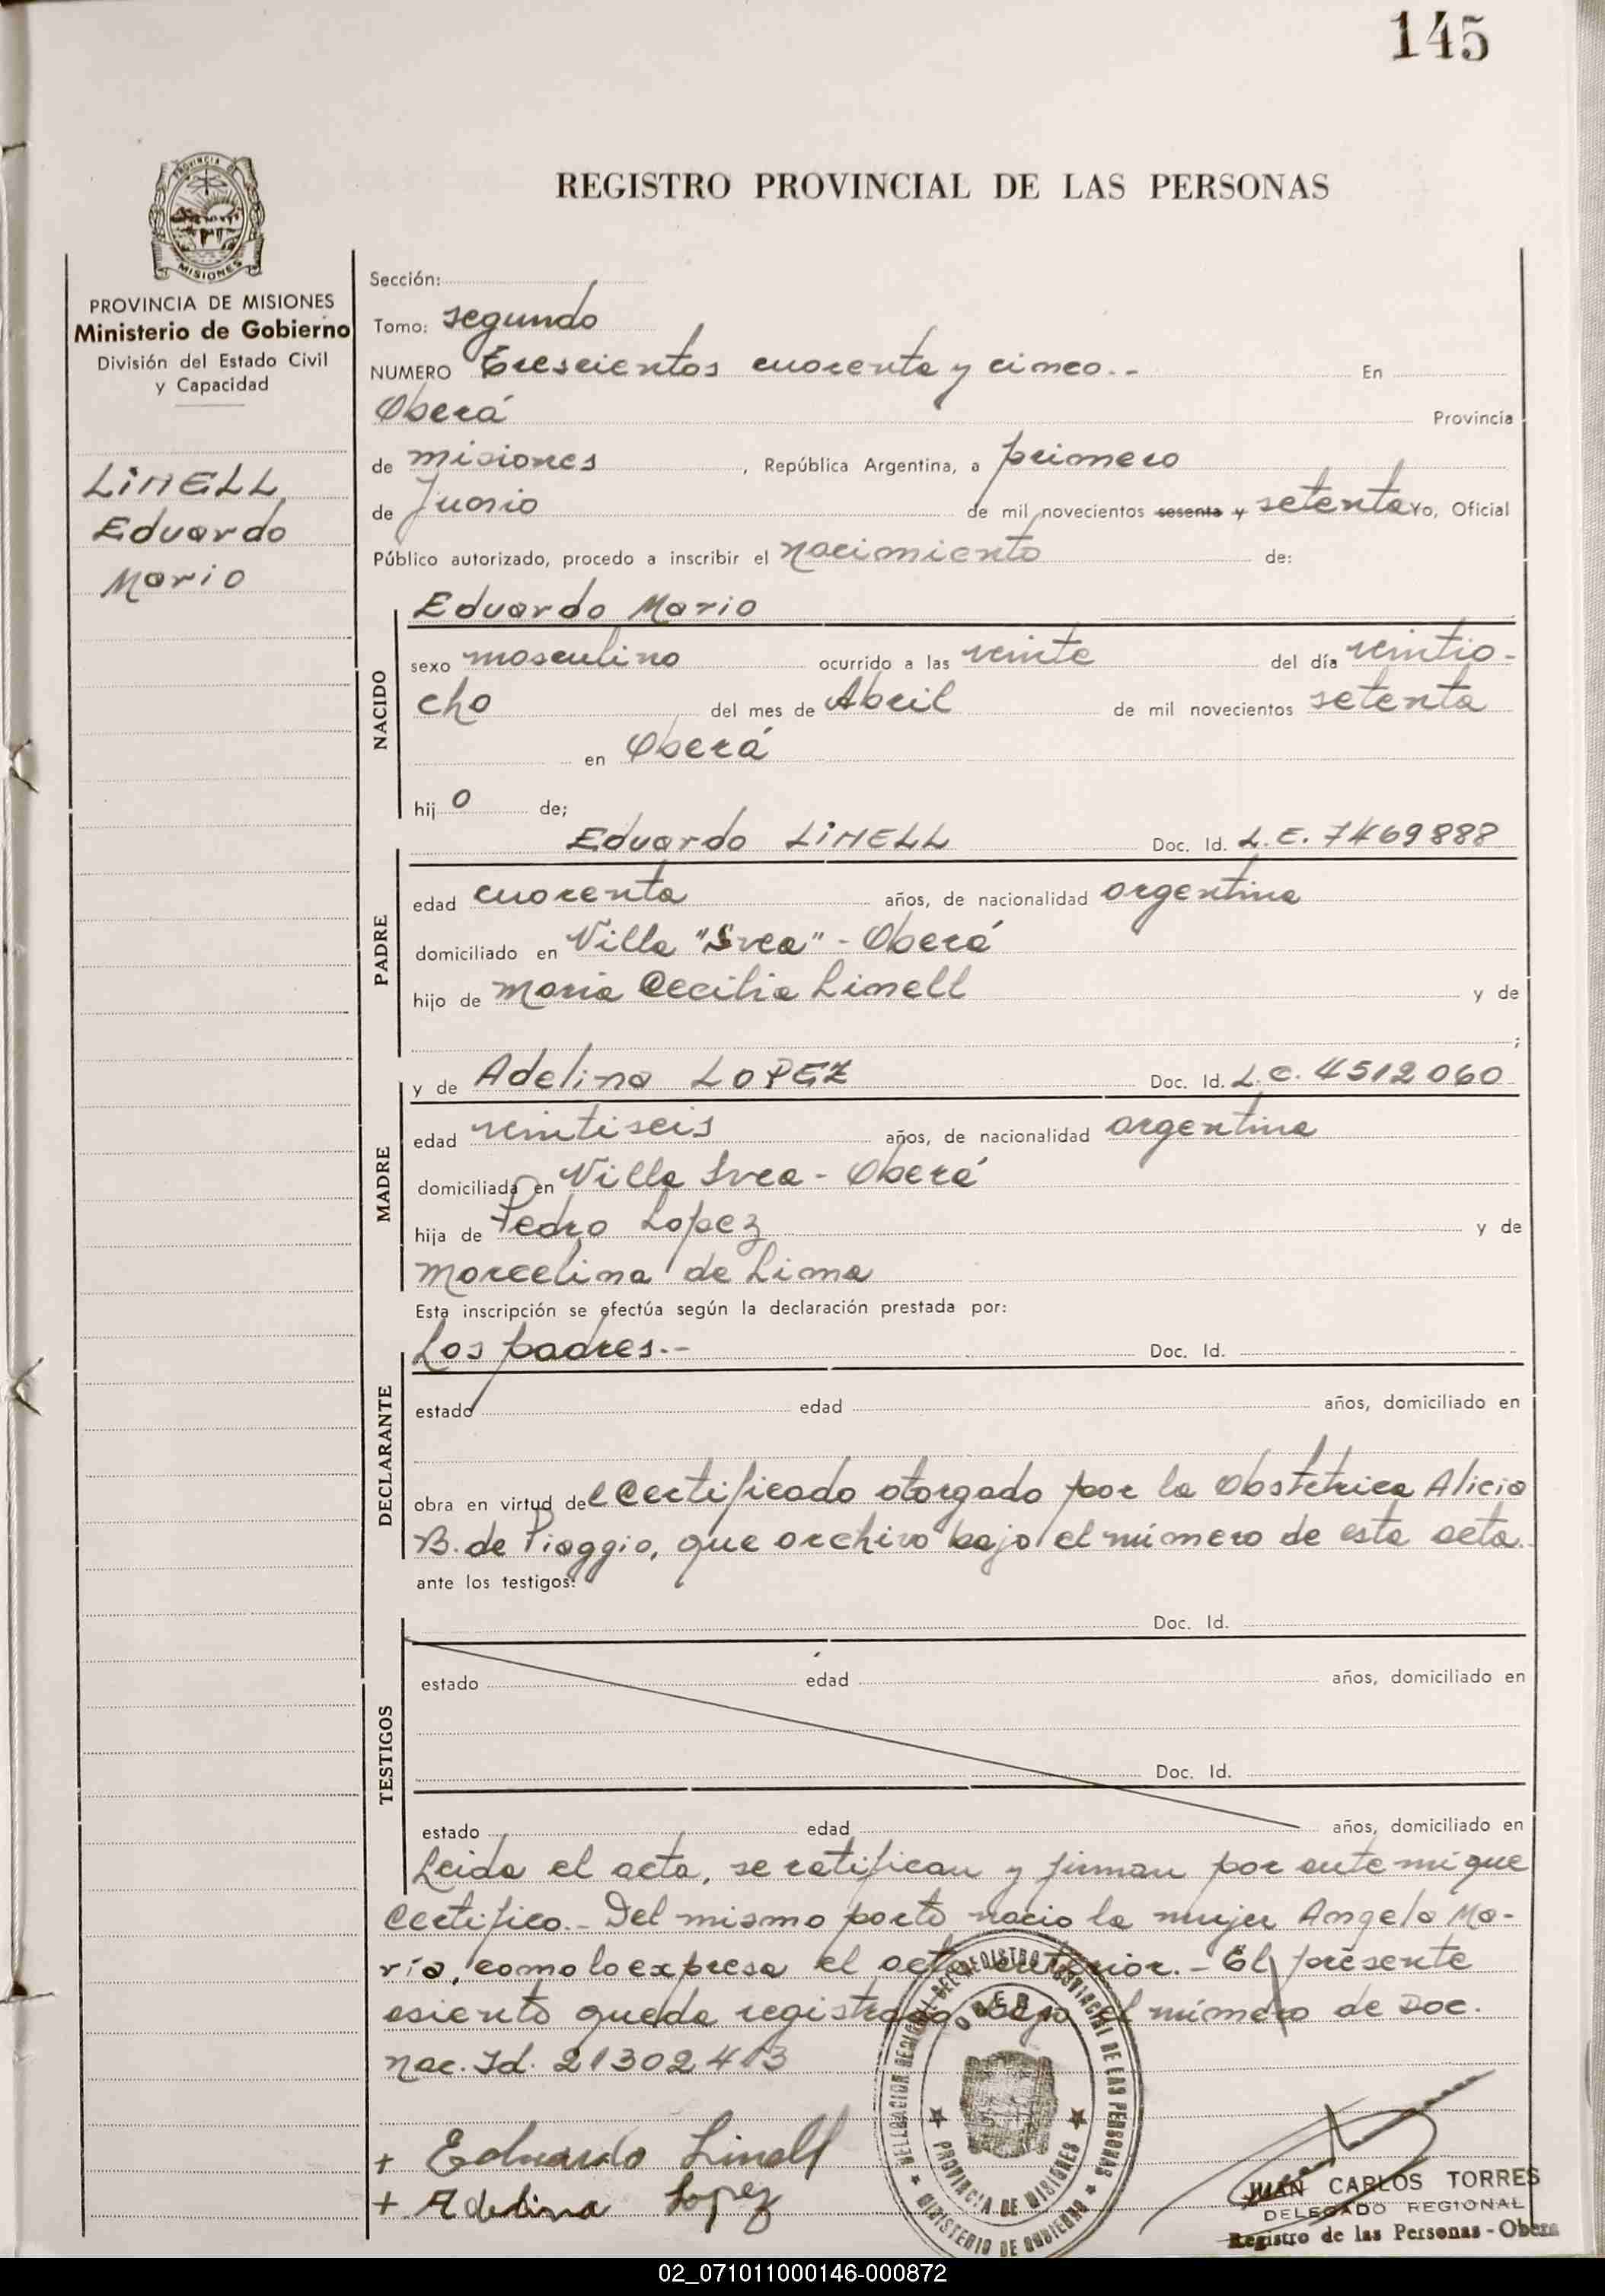 145
PROVINCIA DE
MISIONES
REGISTRO PROVINCIAL DE LAS PERSONAS
PROVINCIA DE MISIONES
Ministerio de Gobierno
División del Estado Civil
y Capacidad
LiNELL,
Eduardo
Mario
Sección:
Tomo: segundo
NUMERO Trescientos cuarenta y cinco.- En
Oberá Provincia
de misiones, República Argentina, a primero
de Junio de mil novecientos sesenta y setenta Yo, Oficial
Público autorizado, procedo a inscribir el nacimiento de:
Eduardo Mario
NACIDO
sexo masculino ocurrido a las veinte del día veintio-
cho del mes de Abril de mil novecientos setenta
en Oberá
hij o de;
Eduardo LiNELL Doc. Id. L.E. 7469888
PADRE
edad cuarenta años, de nacionalidad argentina
domiciliado en Villa "Svea" - Oberá
hijo de Maria Cecilia Linell y de
;
y de Adelina LOPEZ Doc. Id. L.C. 4512060
MADRE
edad veintiseis años, de nacionalidad argentina
domiciliada en Villa Svea - Oberá
hija de Pedro Lopez y de
Marcelina de Lima
Esta inscripción se efectúa según la declaración prestada por:
Los padres.-- Doc. Id.
DECLARANTE
estado edad años, domiciliado en
obra en virtud del Certificado otorgado por la Obstétrica Alicia
B. de Piaggio, que archivo bajo el número de esta acta.
ante los testigos:
Doc. Id.
TESTIGOS
estado edad años, domiciliado en
Doc. Id.
estado edad años, domiciliado en
Leida el acta, se ratifican y firman por ante mí que
Certifico.- Del mismo parto nacio la mujer Angela Ma-
ría, como lo expresa el acta anterior.- El presente
asiento queda registrado bajo el número de Doc.
Nac. Id. 21302413
+ Eduardo Linell
+ Adelina Lopez
DELEGACION REGIONAL DEL REGISTRO PROVINCIAL DE LAS PERSONAS
OBERA
PROVINCIA DE MISIONES
MINISTERIO DE GOBIERNO
JUAN CARLOS TORRES
DELEGADO REGIONAL
Registro de las Personas - Obera
02_071011000146-000872